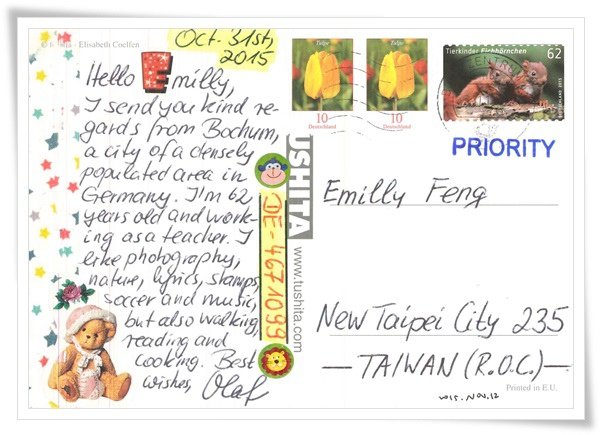 © tushita · Elisabeth Coelfen
Oct. 31st,
2015
Hello Emilly,
I send you kind re-
gards from Bochum,
a city of a densely
populated area in
Germany. I'm 62
years old and work-
ing as a teacher. I
like photography,
nature, lyrics, stamps,
soccer and music,
but also walking,
reading and
cooking. Best
wishes, Olaf
DE-4671099
TUSHITA
www.tushita.com
Tulpe
10
Deutschland
Tulpe
10
Deutschland
Tierkinder Eichhörnchen
62
PRIORITY
Emilly Feng
New Taipei City 235
—TAIWAN (R.O.C.)—
Printed in E.U.
2015. NOV. 12